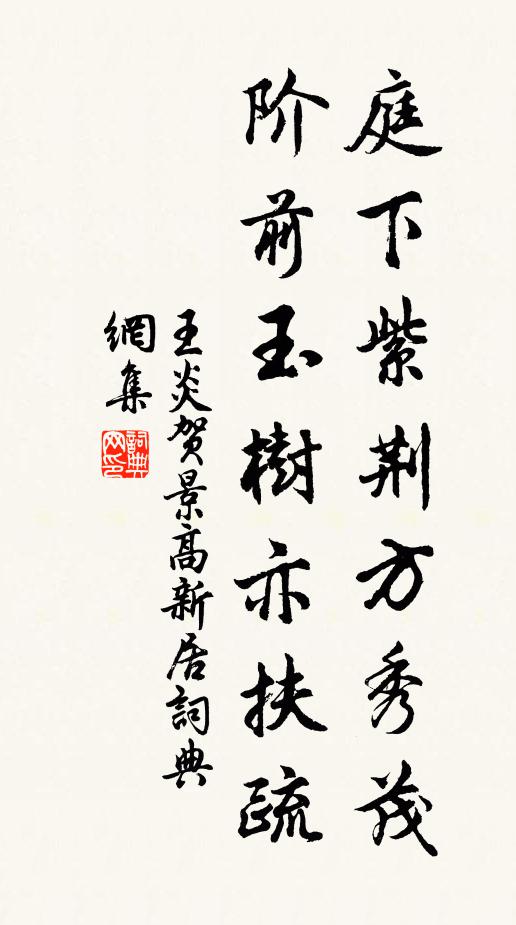 庭下紫荆方秀茂
阶前玉樹亦扶疏
王炎贺景高新居詞典
網集
詞典
网印